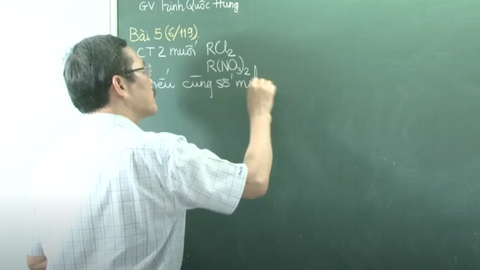 GV Trịnh Quốc Hùng
Bài 5 (6/119).
CT 2 muối RCl₂
R(NO₃)₂
nếu cùng số m